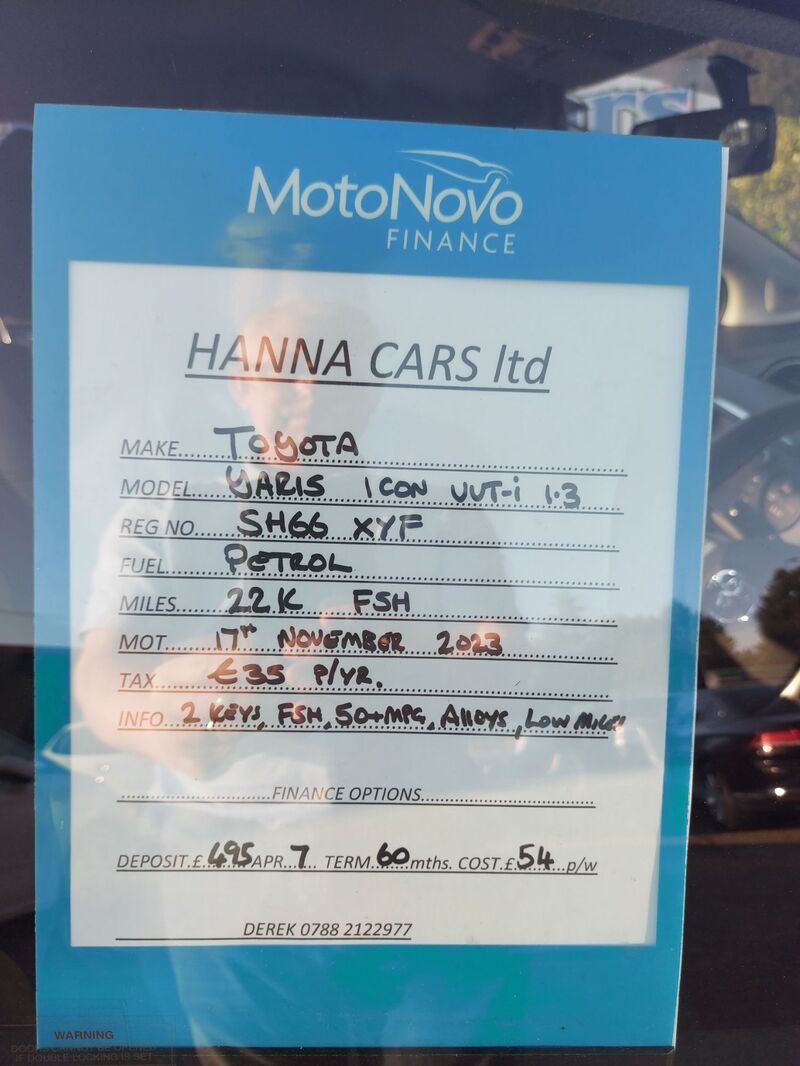 rs
MotoNovo
FINANCE
HANNA CARS ltd
MAKE...... TOYOTA
MODEL..... YARIS ICON VVT-i 1.3
REG NO..... SH66 XYF
FUEL........ PETROL
MILES....... 22K FSH
MOT........ 17TH NOVEMBER 2023
TAX......... £35 P/YR.
INFO.... 2 KEYS, FSH, 50+MPG, ALLOYS, LOW MILES
........................FINANCE OPTIONS...........................
DEPOSIT.£.495 APR..7... TERM..60 mths. COST.£.54...p/w
DEREK 0788 2122977
WARNING
DOORS CANNOT BE OPENED
IF DOUBLE LOCKING IS SET